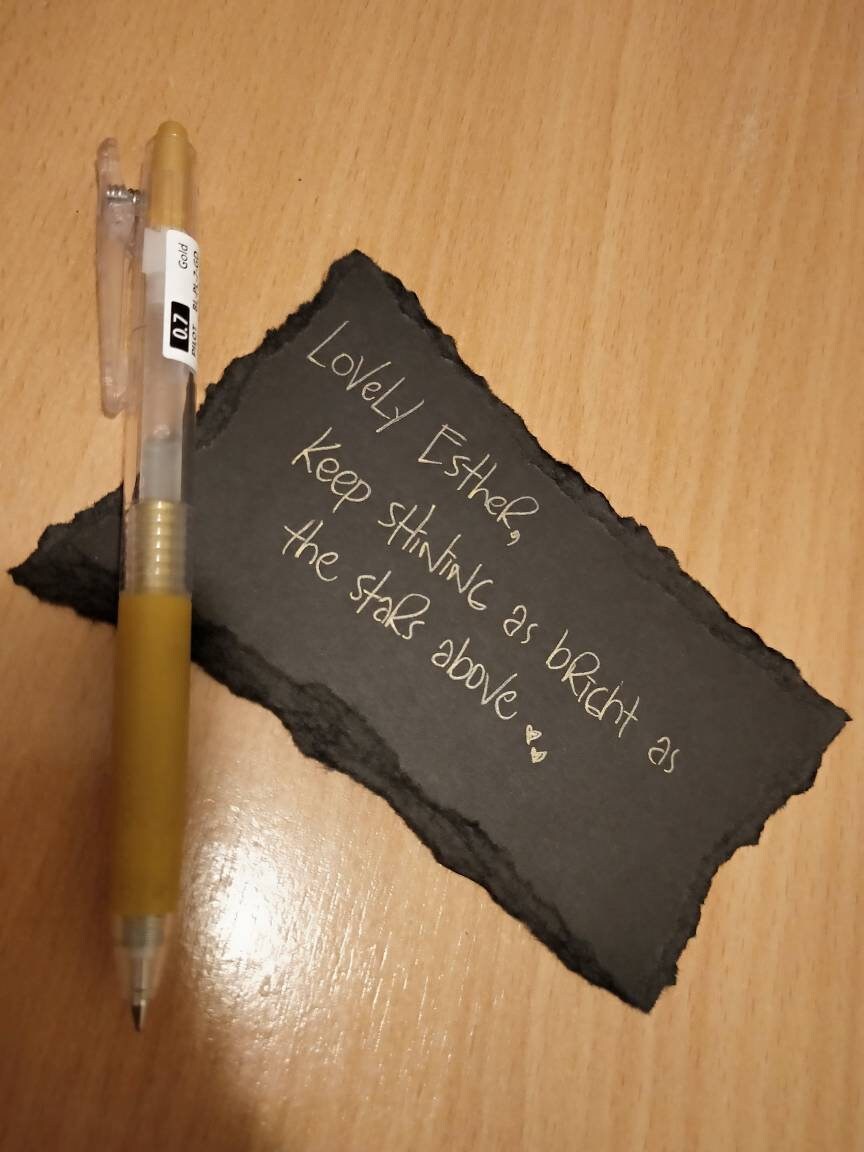 Lovely Esther,
Keep shining as bright as
the stars above
Gold
0.7
PILOT